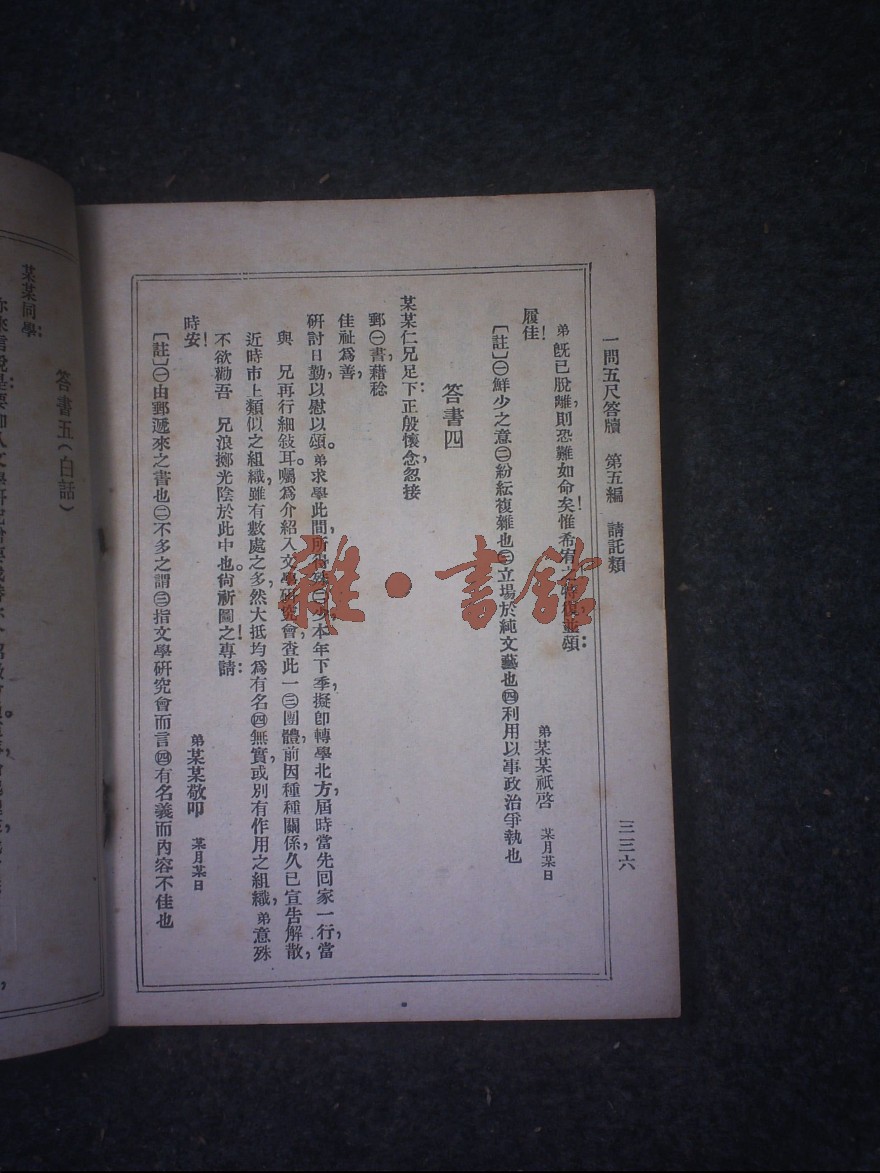 一問五答尺牘　第五編　請託類
三三六
弟既已脫離，則恐難如命矣！惟希宥之　　並頌：
履佳！
弟某某祇啓　某月某日
〔註〕㊀鮮少之意㊁紛紜複雜也㊂立場於純文藝也㊃利用以事政治爭執也
答書四
某某仁兄足下：正殷懷念，忽接
郵㊀書，藉稔
佳祉爲善，
研討日勤，以慰以頌。弟求學此間，所得殊㊁少，本年下季，擬卽轉學北方，屆時當先回家一行，當
與　兄再行細敍耳。囑爲介紹入文學研究會，查此一㊂團體，前因種種關係，久已宣告解散，
近時市上類似之組織，雖有數處之多，然大抵均爲有名㊃無實，或別有作用之組織，弟意殊
不欲勸吾　兄浪擲光陰於此中也。尙祈圖之！專請：
時安！
弟某某敬叩　某月某日
〔註〕㊀由郵遞來之書也㊁不多之謂㊂指文學研究會而言㊃有名義而內容不佳也
雜・書館
答書五（白話）
某某同學：